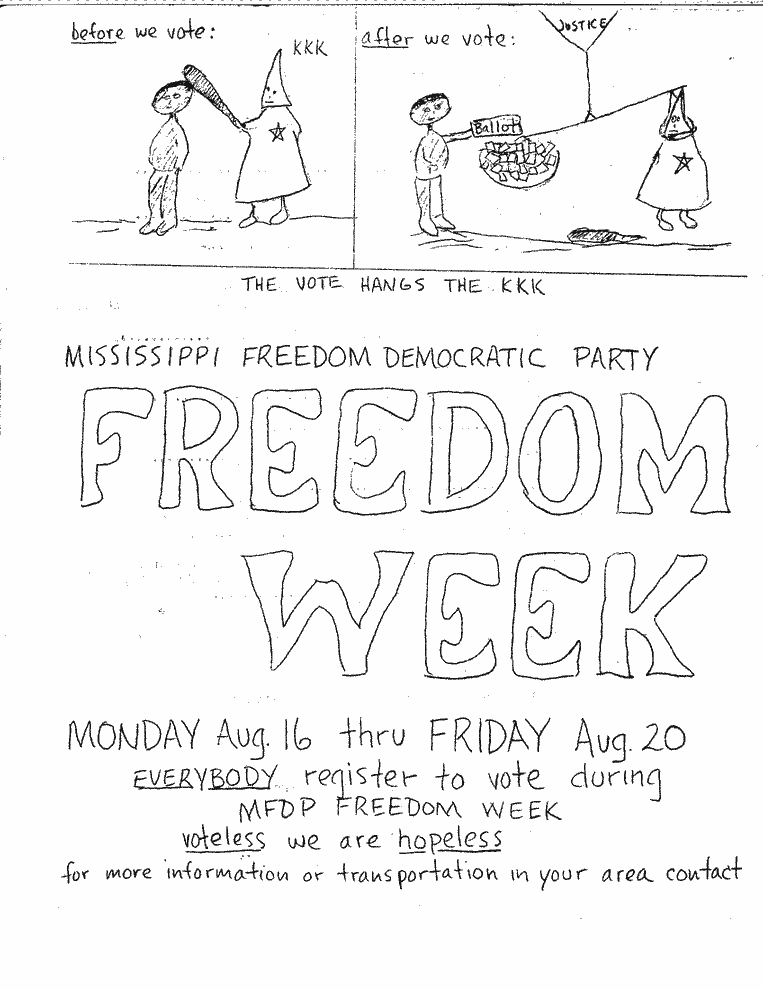 before we vote:
KKK
after we vote:
JUSTICE
Ballot
THE VOTE HANGS THE KKK
MISSISSIPPI FREEDOM DEMOCRATIC PARTY
FREEDOM
WEEK
MONDAY Aug. 16 thru FRIDAY Aug. 20
EVERYBODY register to vote during
MFDP FREEDOM WEEK
voteless we are hopeless
for more information or transportation in your area contact